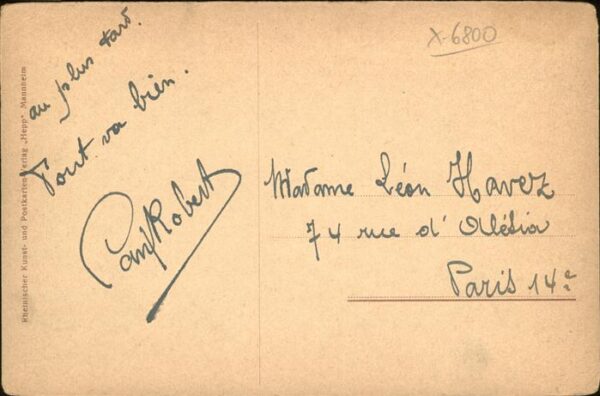 X-6800
au plus tard.
Tout va bien.
Madame Léon Havez
74 rue d' Alésia
Paris 14e
Rheinischer Kunst- und Postkarten-Verlag „Hepp" Mannheim